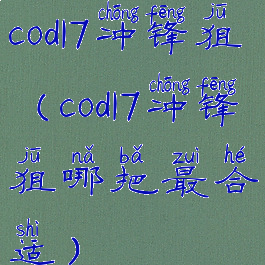 chōng fēng jū
cod17冲锋狙
chōng fēng
（cod17冲锋
jū nǎ bǎ zuì hé
狙哪把最合
shì
适）